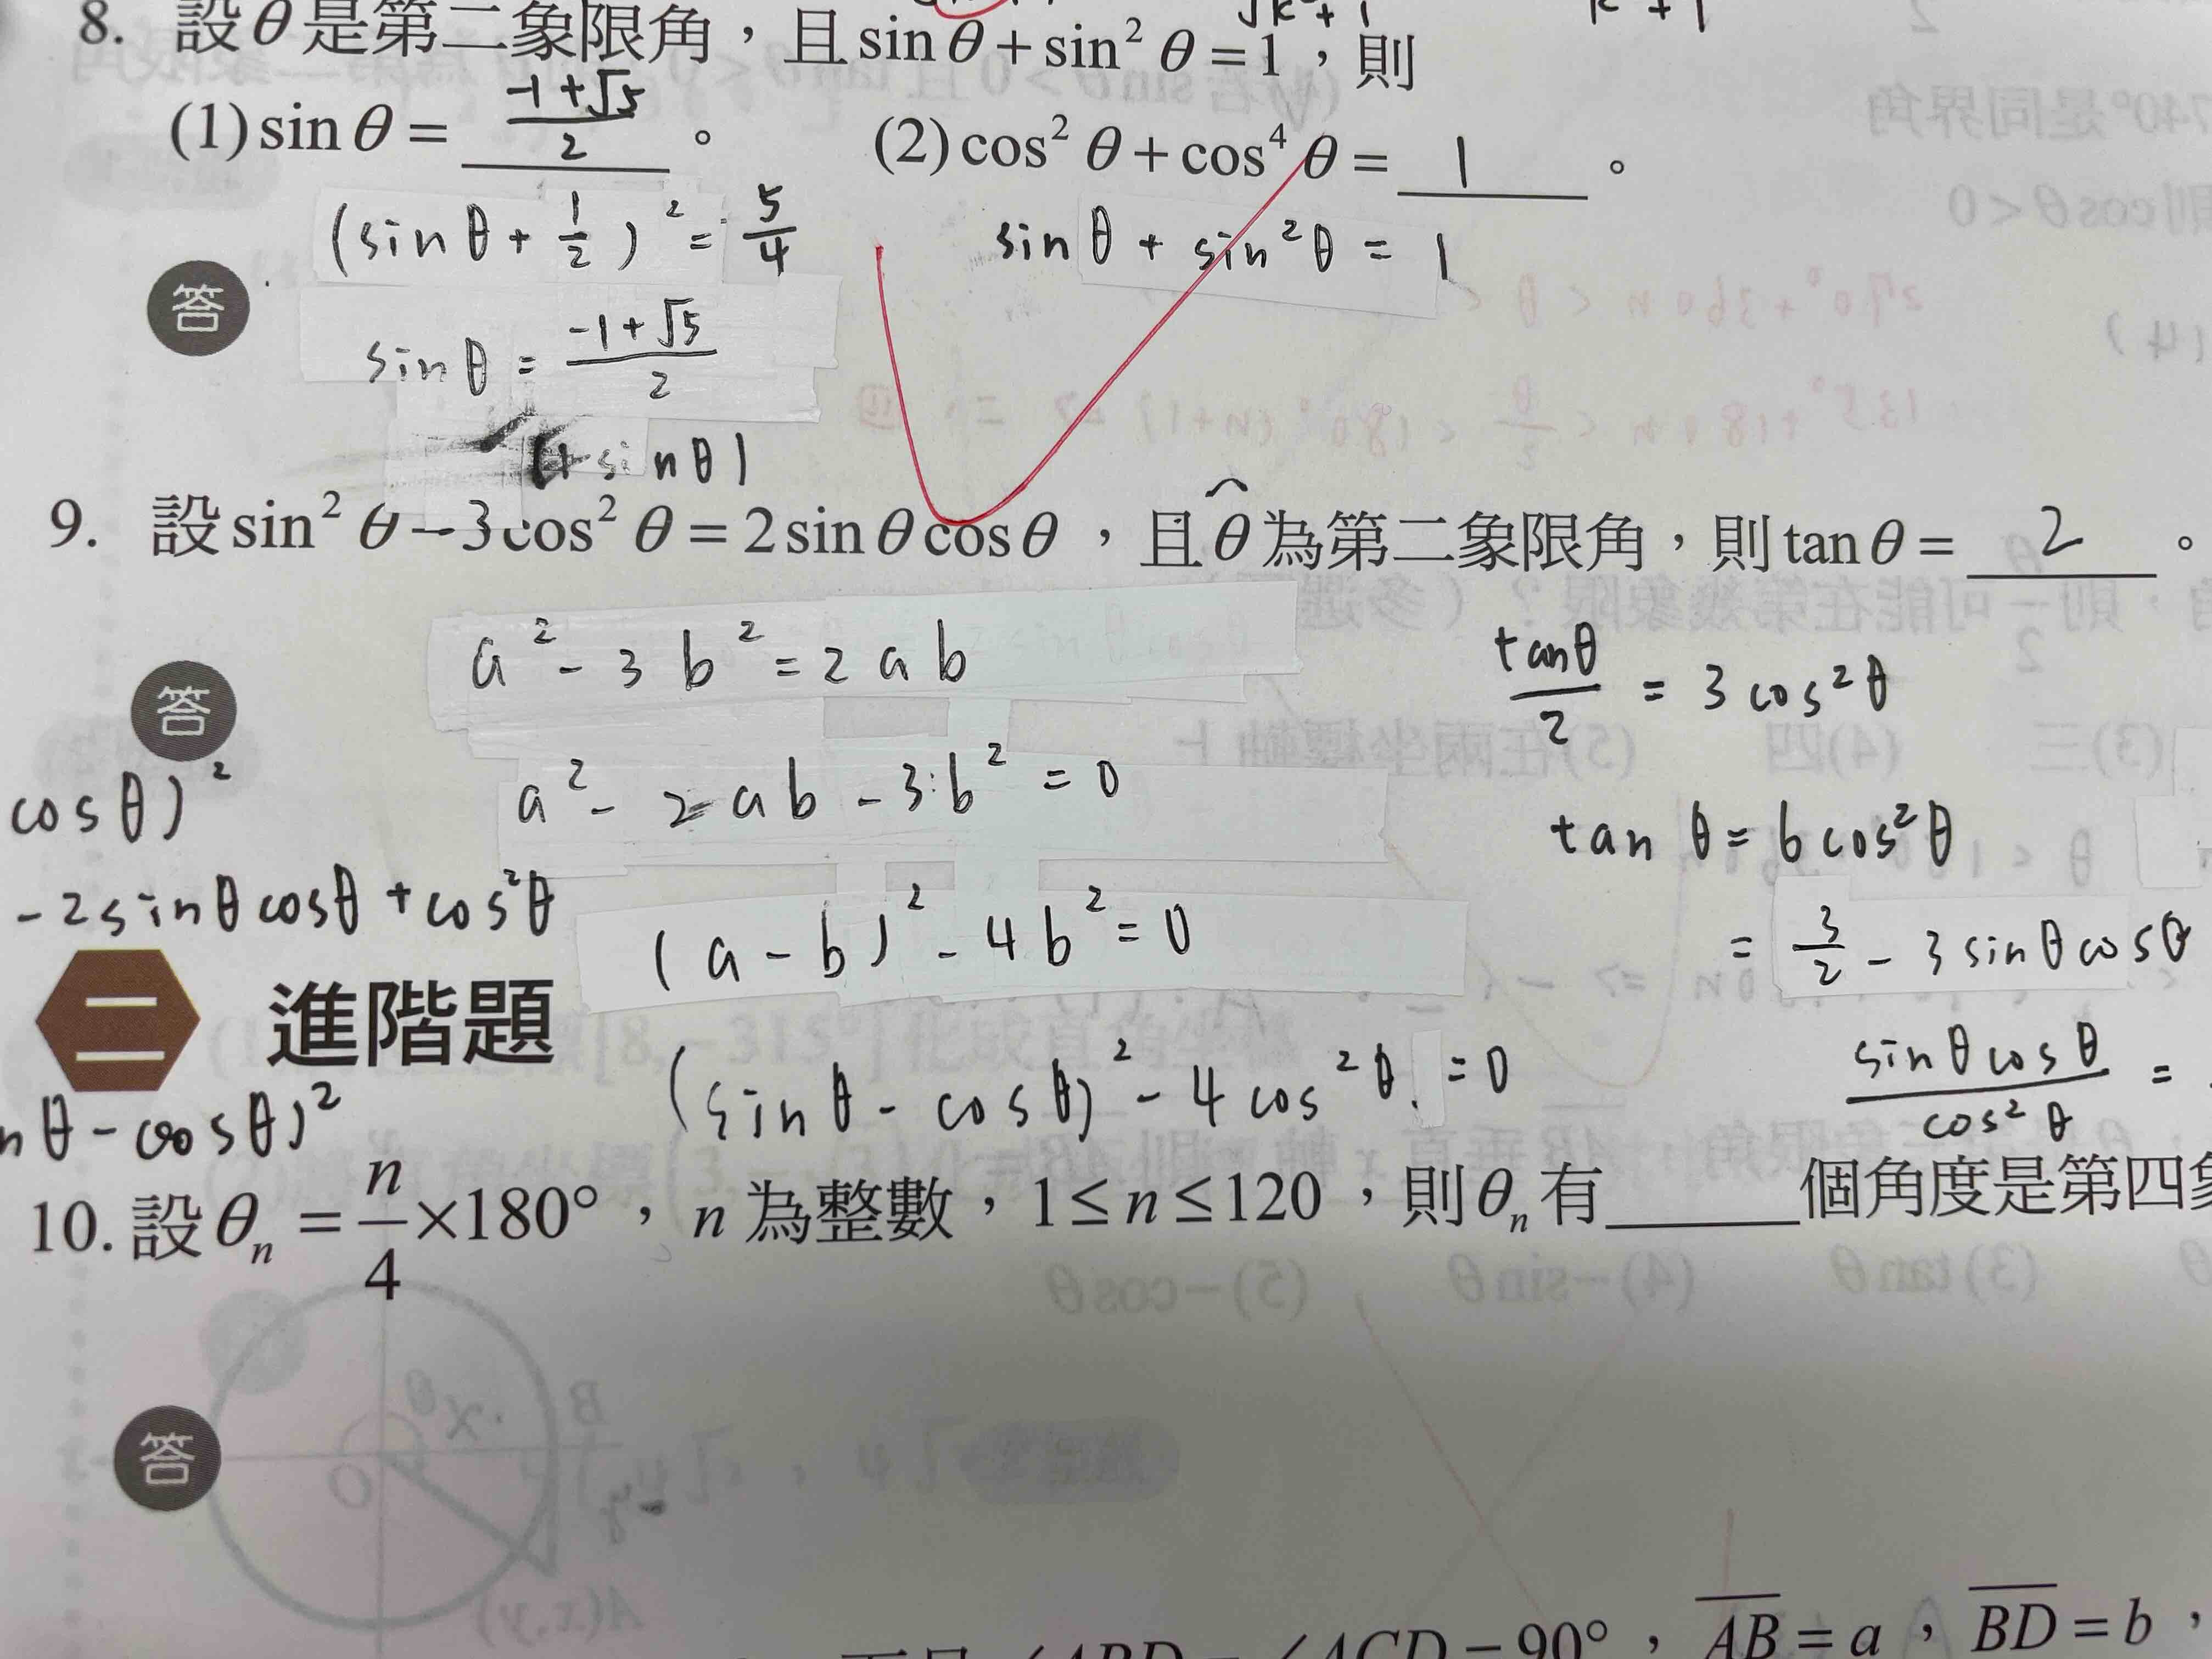 8. 設θ是第二象限角，且 sin θ + sin² θ = 1，則
(1) sin θ = (-1+√5)/2 。 (2) cos² θ + cos⁴ θ = 1 。
(sin θ + 1/2)² = 5/4 sin θ + sin² θ = 1
答
sin θ = (-1+√5)/2
sin θ)
9. 設 sin² θ - 3cos² θ = 2 sin θ cos θ ，且 θ 為第二象限角，則 tan θ = 2 。
a² - 3b² = 2ab
tanθ/2 = 3cos²θ
答
a² - 2ab - 3b² = 0
cosθ)²
tan θ = 6cos²θ
-2sinθcosθ + cos²θ
(a - b)² - 4b² = 0
= 3/2 - 3sinθcosθ
二 進階題
(sinθ - cosθ)² - 4cos²θ = 0
sinθcosθ/cos²θ =
nθ - cosθ)²
10. 設 θₙ = n/4 × 180°，n 為整數，1 ≤ n ≤ 120，則 θₙ 有_____個角度是第四
答
90°，AB = a，BD = b，